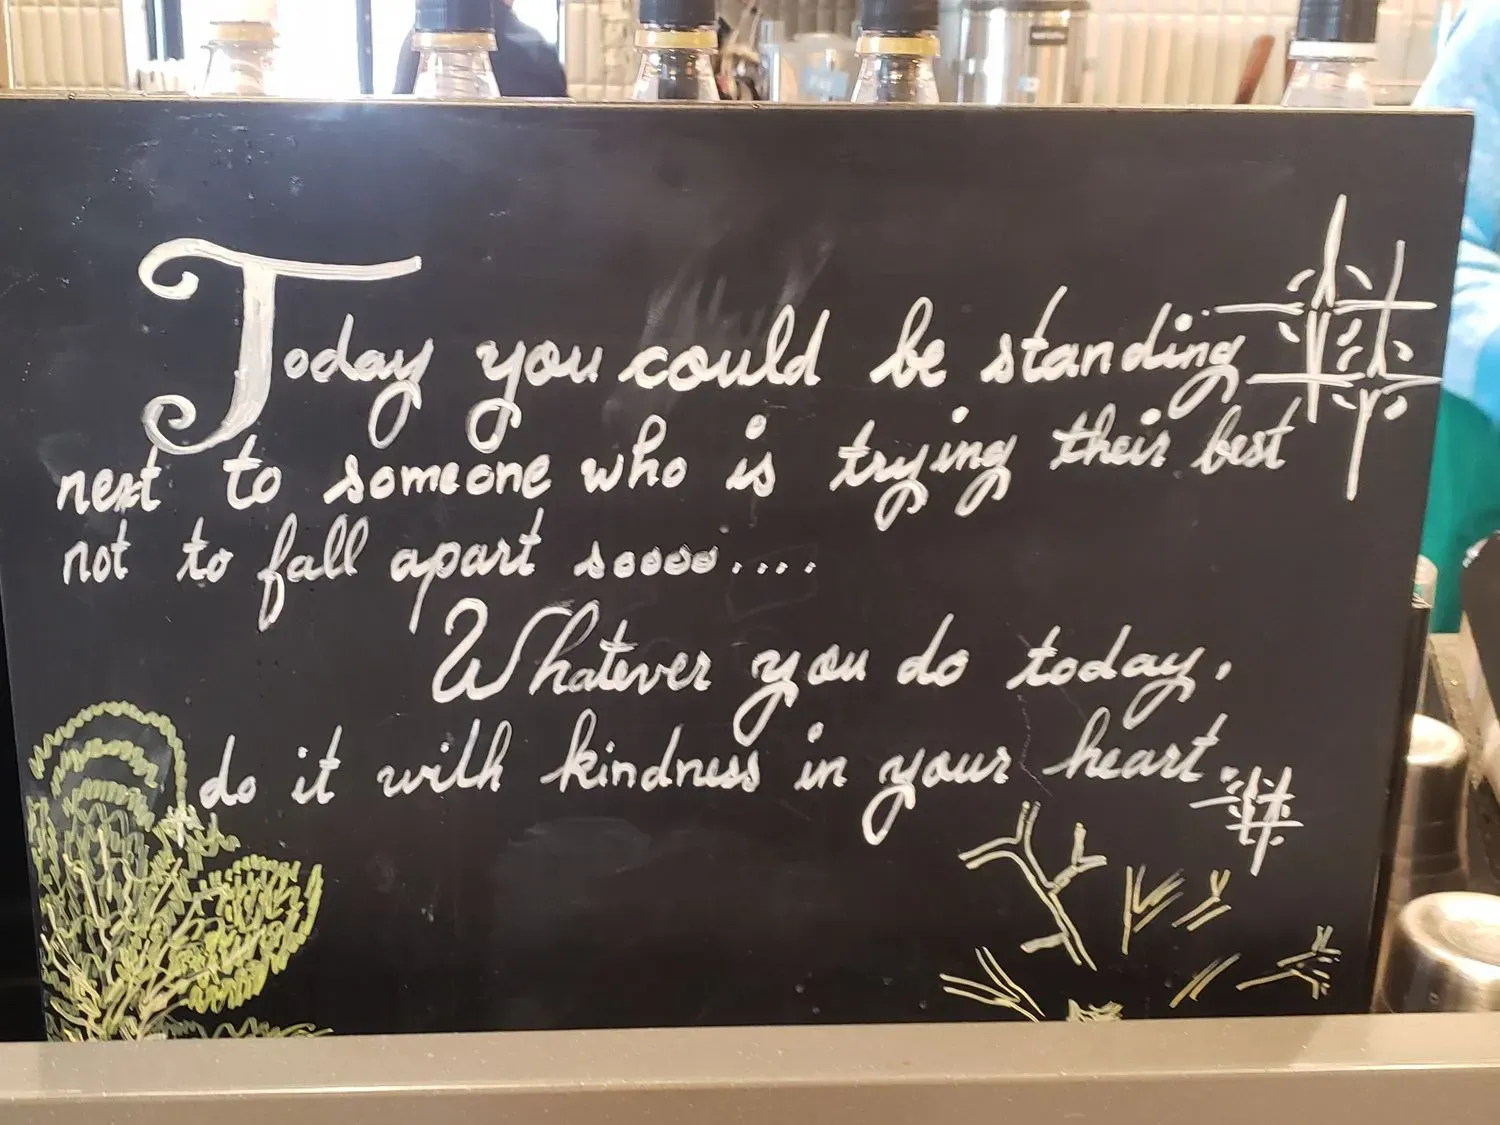 Today you could be standing
next to someone who is trying their best
not to fall apart soooo....
Whatever you do today,
do it with kindness in your heart.